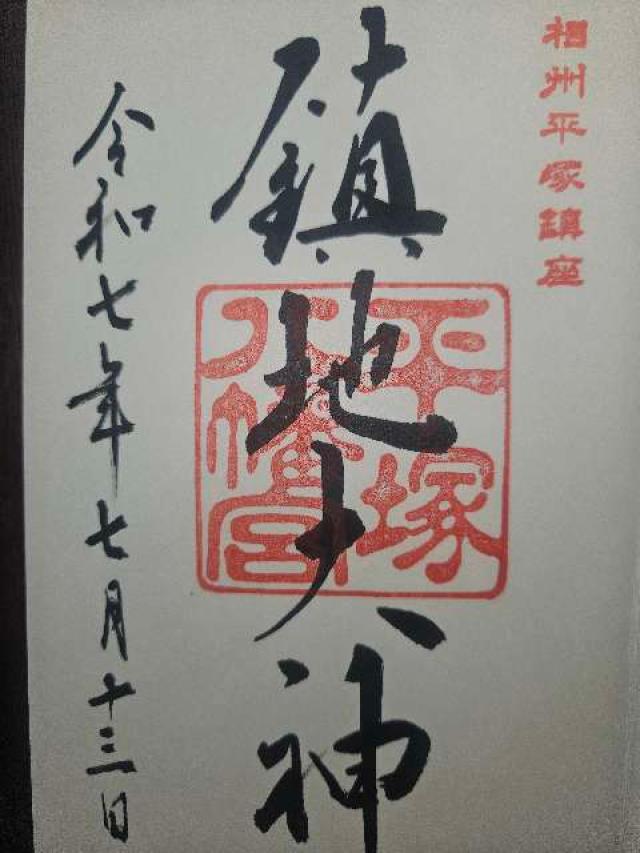 相州平塚鎮座
鎮地大神
平塚
八幡宮
令和七年七月十三日